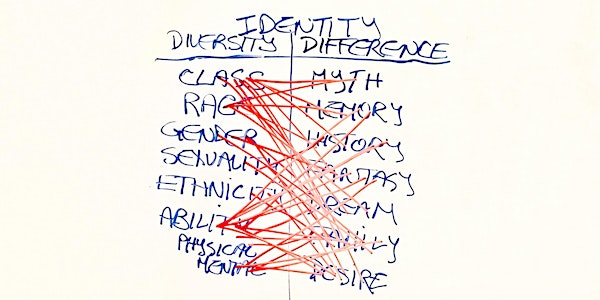 IDENTITY
DIVERSITY
CLASS
RACE
GENDER
SEXUALITY
ETHNICITY
ABILITY
PHYSICAL
MENTAL
DIFFERENCE
MYTH
MEMORY
HISTORY
FANTASY
DREAM
FAMILY
DESIRE